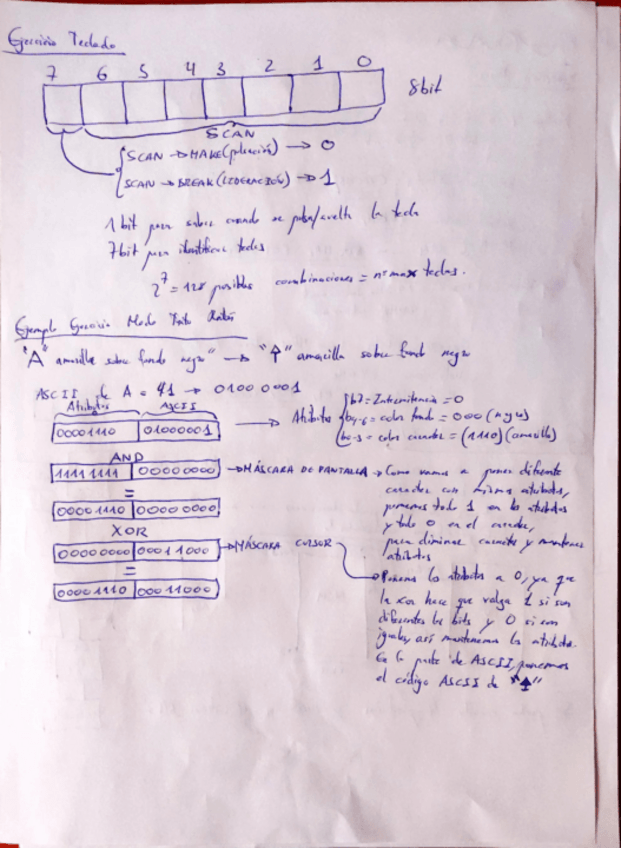 Ejercicio Teclado
7 6 5 4 3 2 1 0
8bit
SCAN
SCAN → MAKE (pulsación) → 0
SCAN → BREAK (LIBERACIÓN) → 1
1 bit para saber cuando se pulsa/suelta la tecla
7bit para identificar teclas
2^7 = 128 posibles combinaciones = nº max teclas.
Ejemplo Ejercicio Modo Texto Ratón
"A" amarilla sobre fondo negro" → "↑" amarilla sobre fondo negro
ASCII de A = 41 → 0100 0001
Atributos ASCII
00001110 01000001 → Atributos
b7 = Intermitencia = 0
b4-6 = color fondo = 000 (negro)
b0-3 = color caracter = (1110) (amarillo)
AND
11111111 00000000 → MÁSCARA DE PANTALLA → Como vamos a poner diferente
caracter con mismos atributos,
ponemos todo 1 en los atributos
y todo 0 en el caracter,
para eliminar caracter y mantener
atributos
=
00001110 00000000
XOR
00000000 00011000 → MÁSCARA CURSOR
→ Ponemos los atributos a 0, ya que
la xor hace que valga 1 si son
diferentes los bits y 0 si son
iguales, así mantenemos los atributos.
En la parte de ASCII, ponemos
el código ASCII de "↑"
=
00001110 00011000